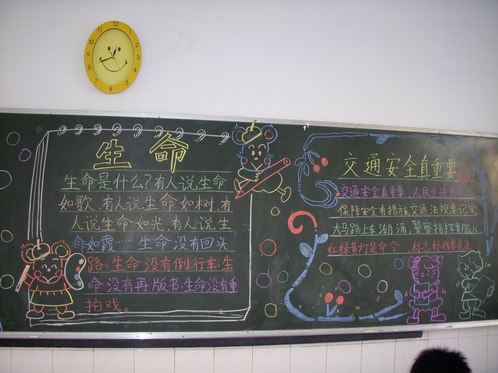 生命
生命是什么？有人说生命
如歌，有人说生命如树，有
人说生命如光，有人说生
命如露……生命没有回头
路；生命没有倒行车；生
命没有再版书；生命没有重
拍戏。
交通安全真重要
交通安全真重要，人民生活
保险安有措施，交通法规要记牢
大马路上车潮涌，警察指挥要服从
红绿黄灯是命令